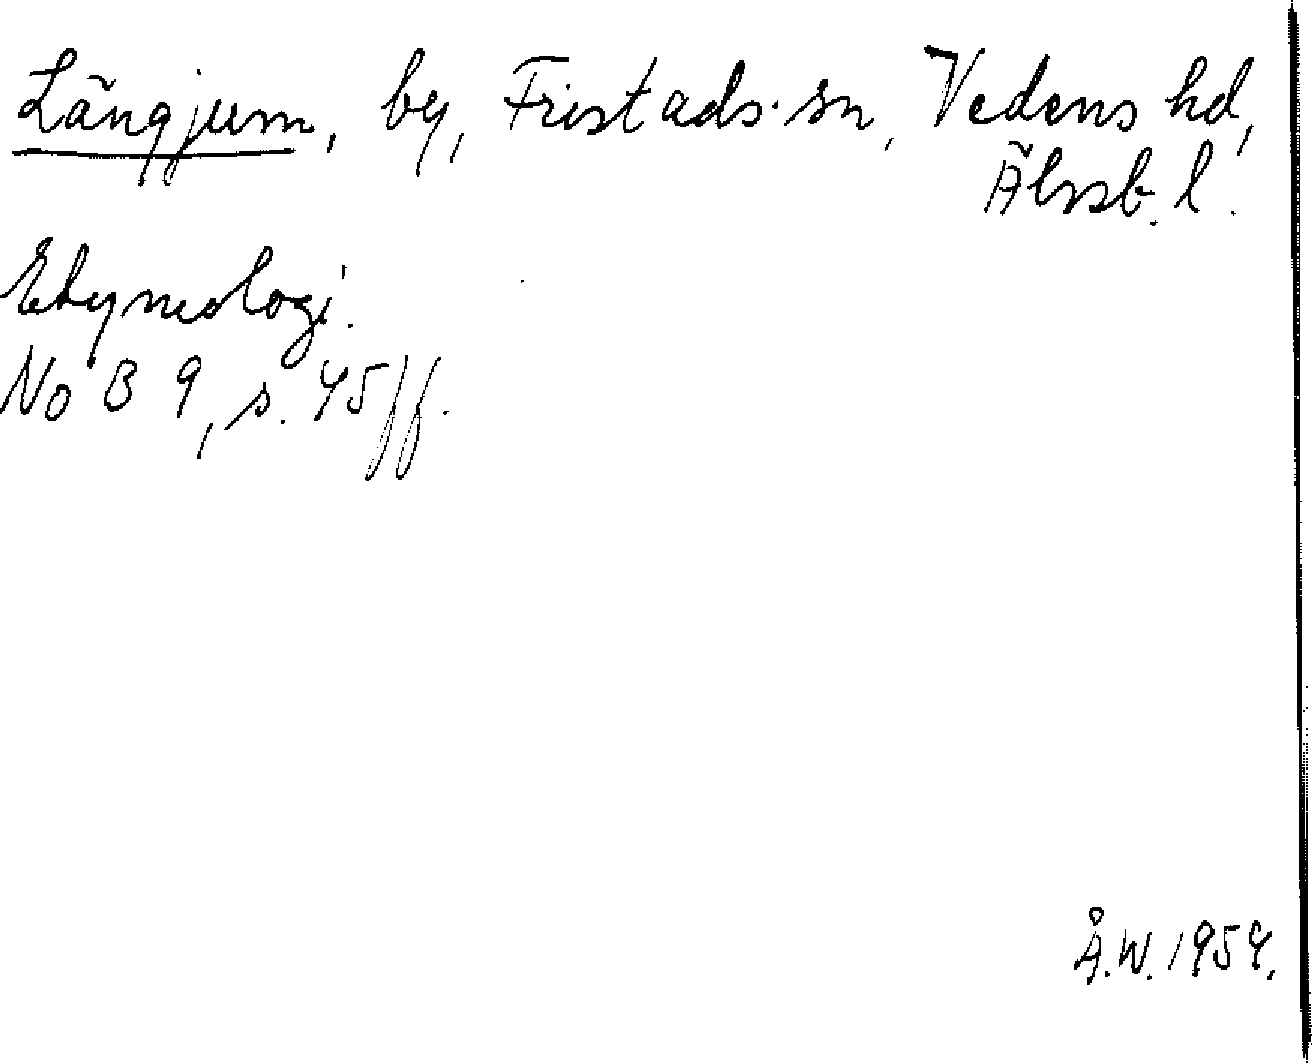 Längjum, by, Fristads sn, Vedens hd,
Älvsb. l.
Etymologi.
NoB 9, s. 45 ff.
Å.W. 1954.